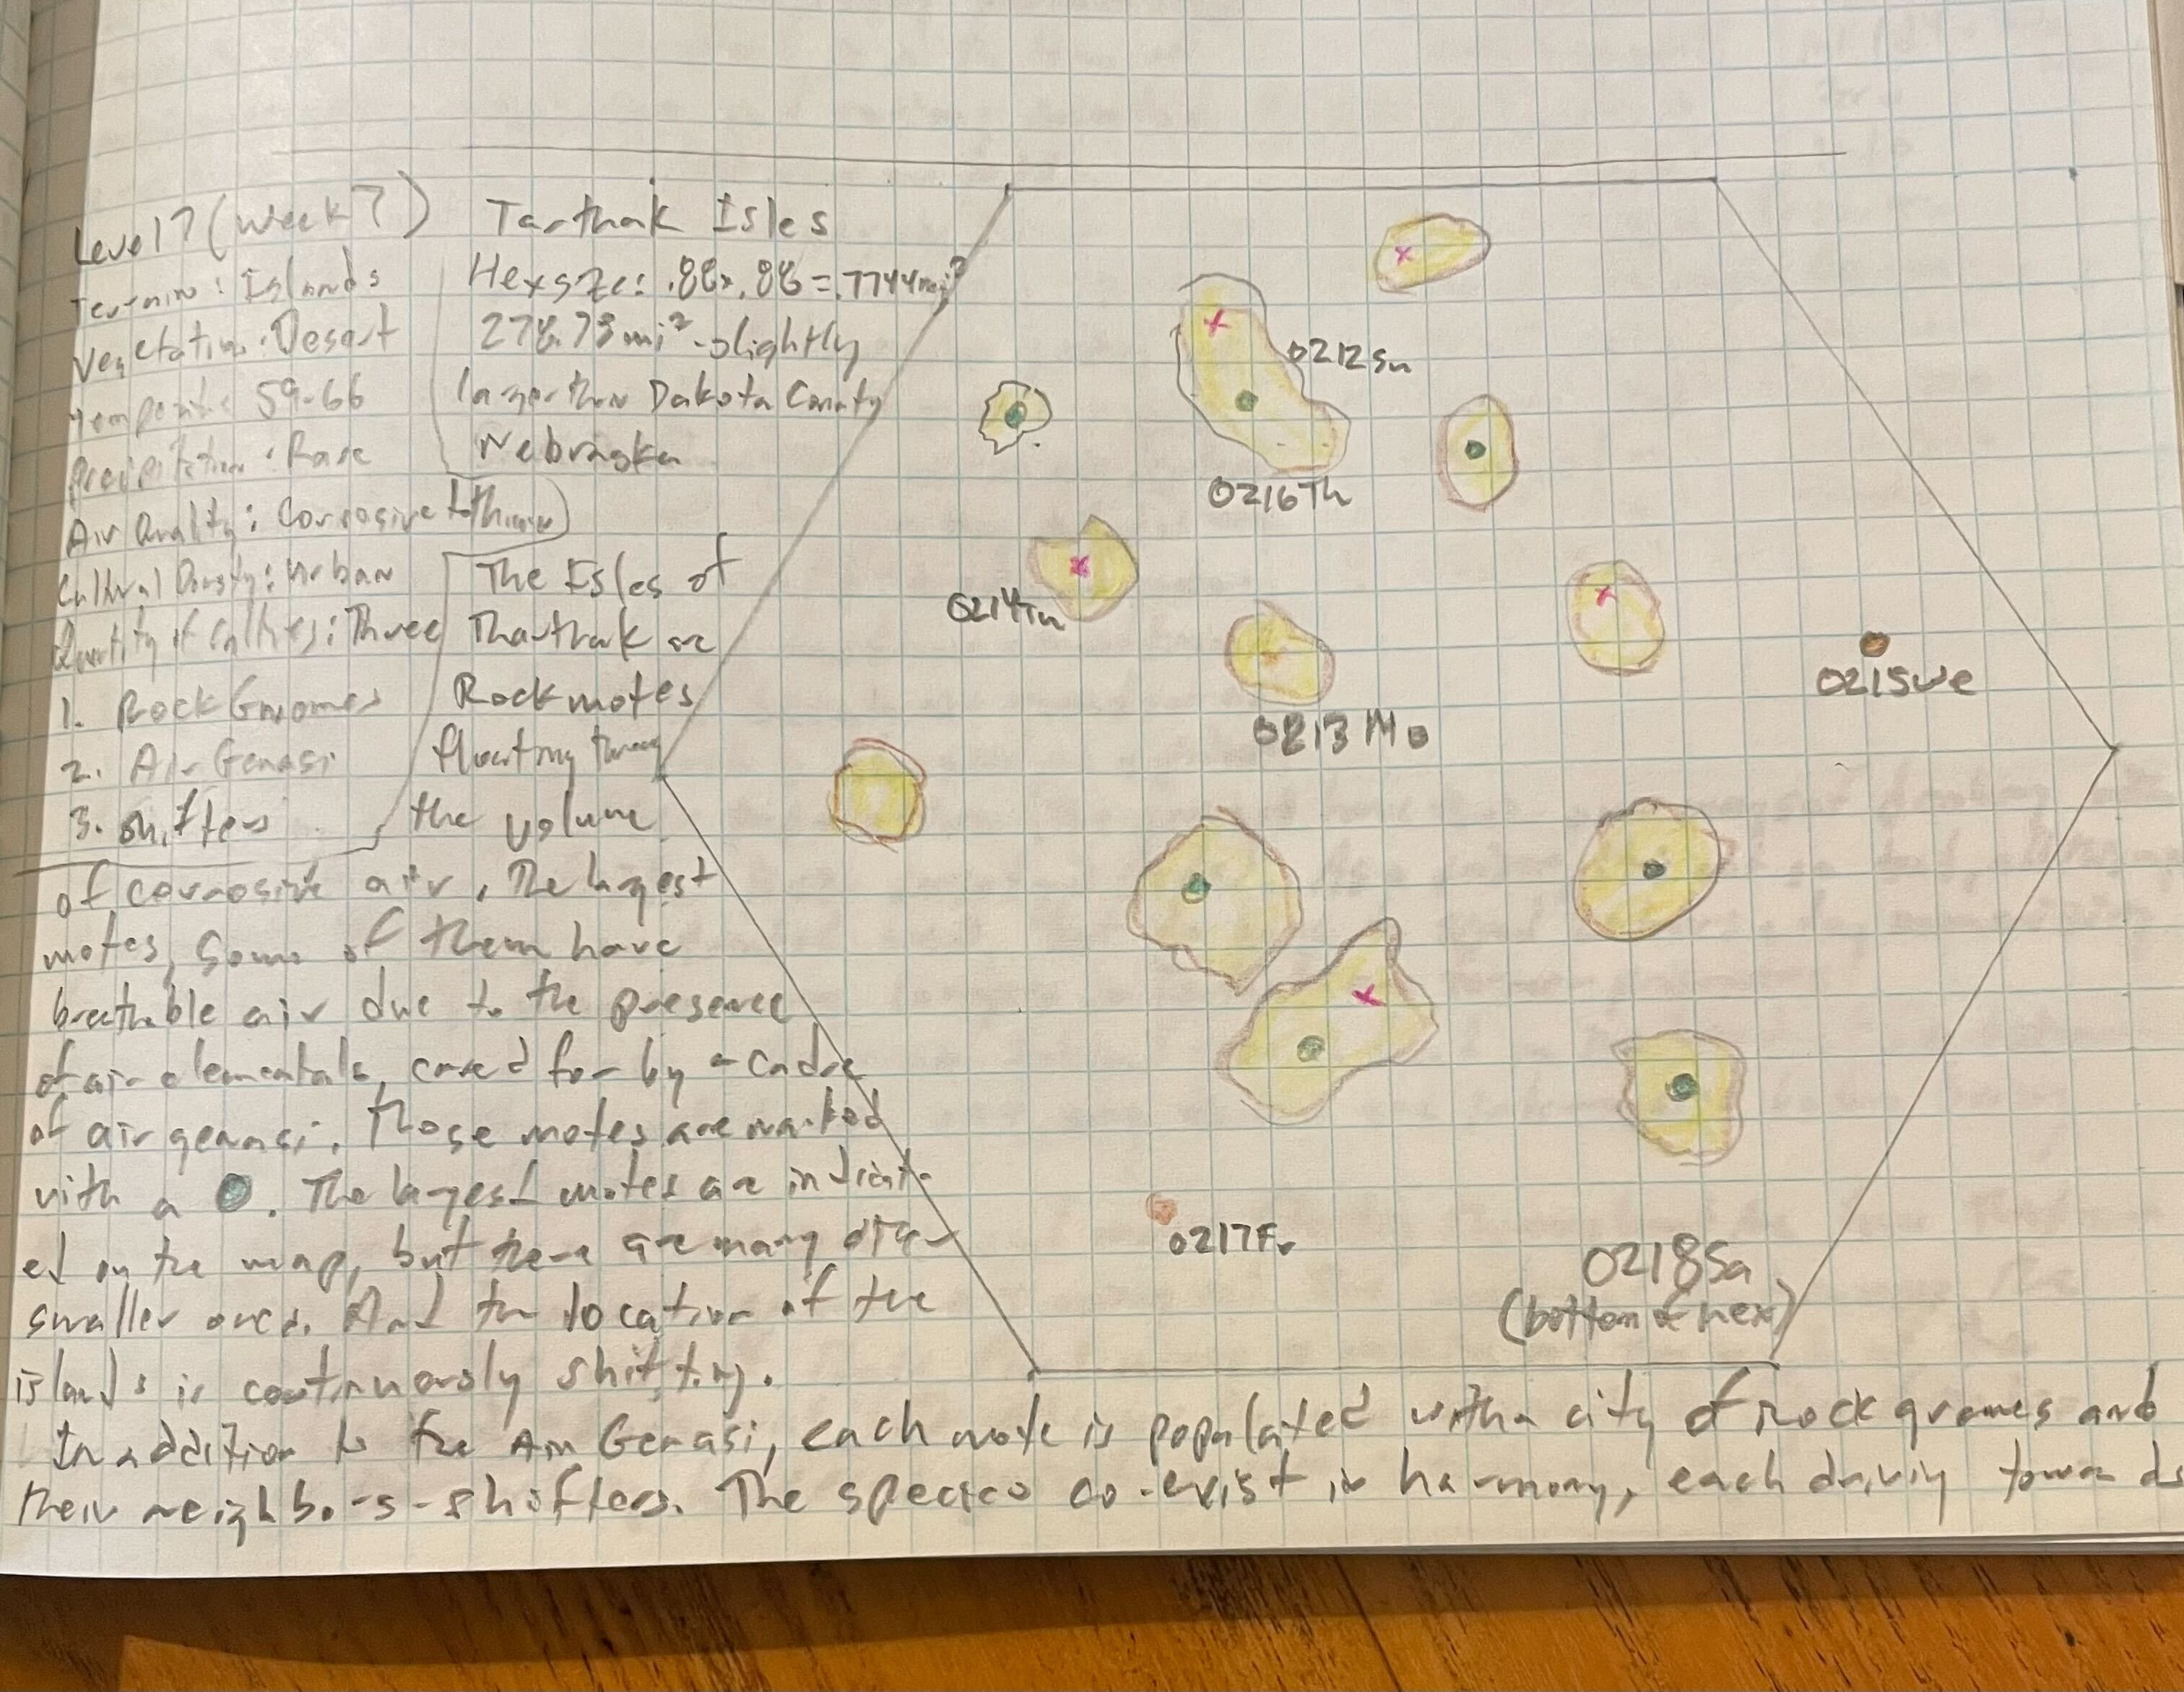 Level 7 (Week 7)
Terrain: Islands
Vegetation: Desert
59-66
Precipitation: Rare
Air Quality: Corrosive
Cultural Density: Urban
Quantity of Cultures: Three
1. Rock Gnomes
2. Air Genasi
3. Shifters
Tarthak Isles
Hex size: .88x.88 = .7744mi²
mi² - slightly
larger than Dakota County
Nebraska
The Isles of
Tharthak are
Rock motes
floating through
the volume
of corrosive air. The largest
motes, some of them have
breathable air due to the presence
of air elementals, cared for by a cadre
of air genasi. Those motes are marked
with a . The largest motes are indicat-
ed on the map, but there are many other
smaller ones. And the location of the
islands is continuously shifting.
In addition to the Air Genasi, each mote is populated with a city of rock gnomes and
their neighbors - shifters. The species co-exist in harmony, each driving towards
0212Su
0216Th
0214Tu
0213Mo
0215We
0217Fr
0218Sa
(bottom of hex)